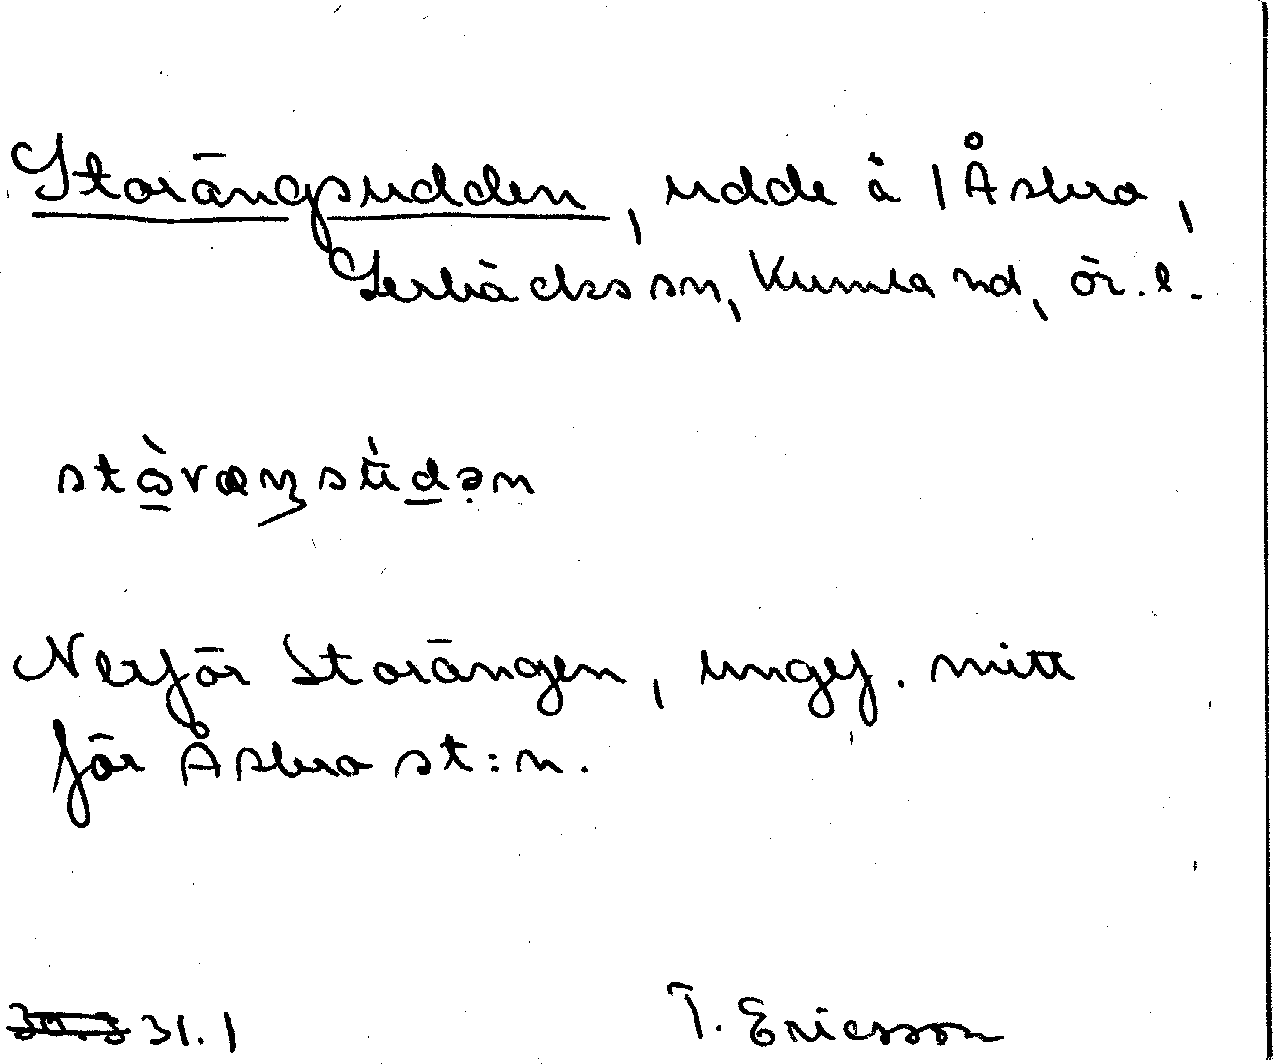 Storängsudden, udde å 1 Åsbro,
Lerbäcks sn, Kumla hd, Ör. l.
Nerför Storängen, ungef. mitt
för Åsbro st:n.
31.1 T. Ericsson